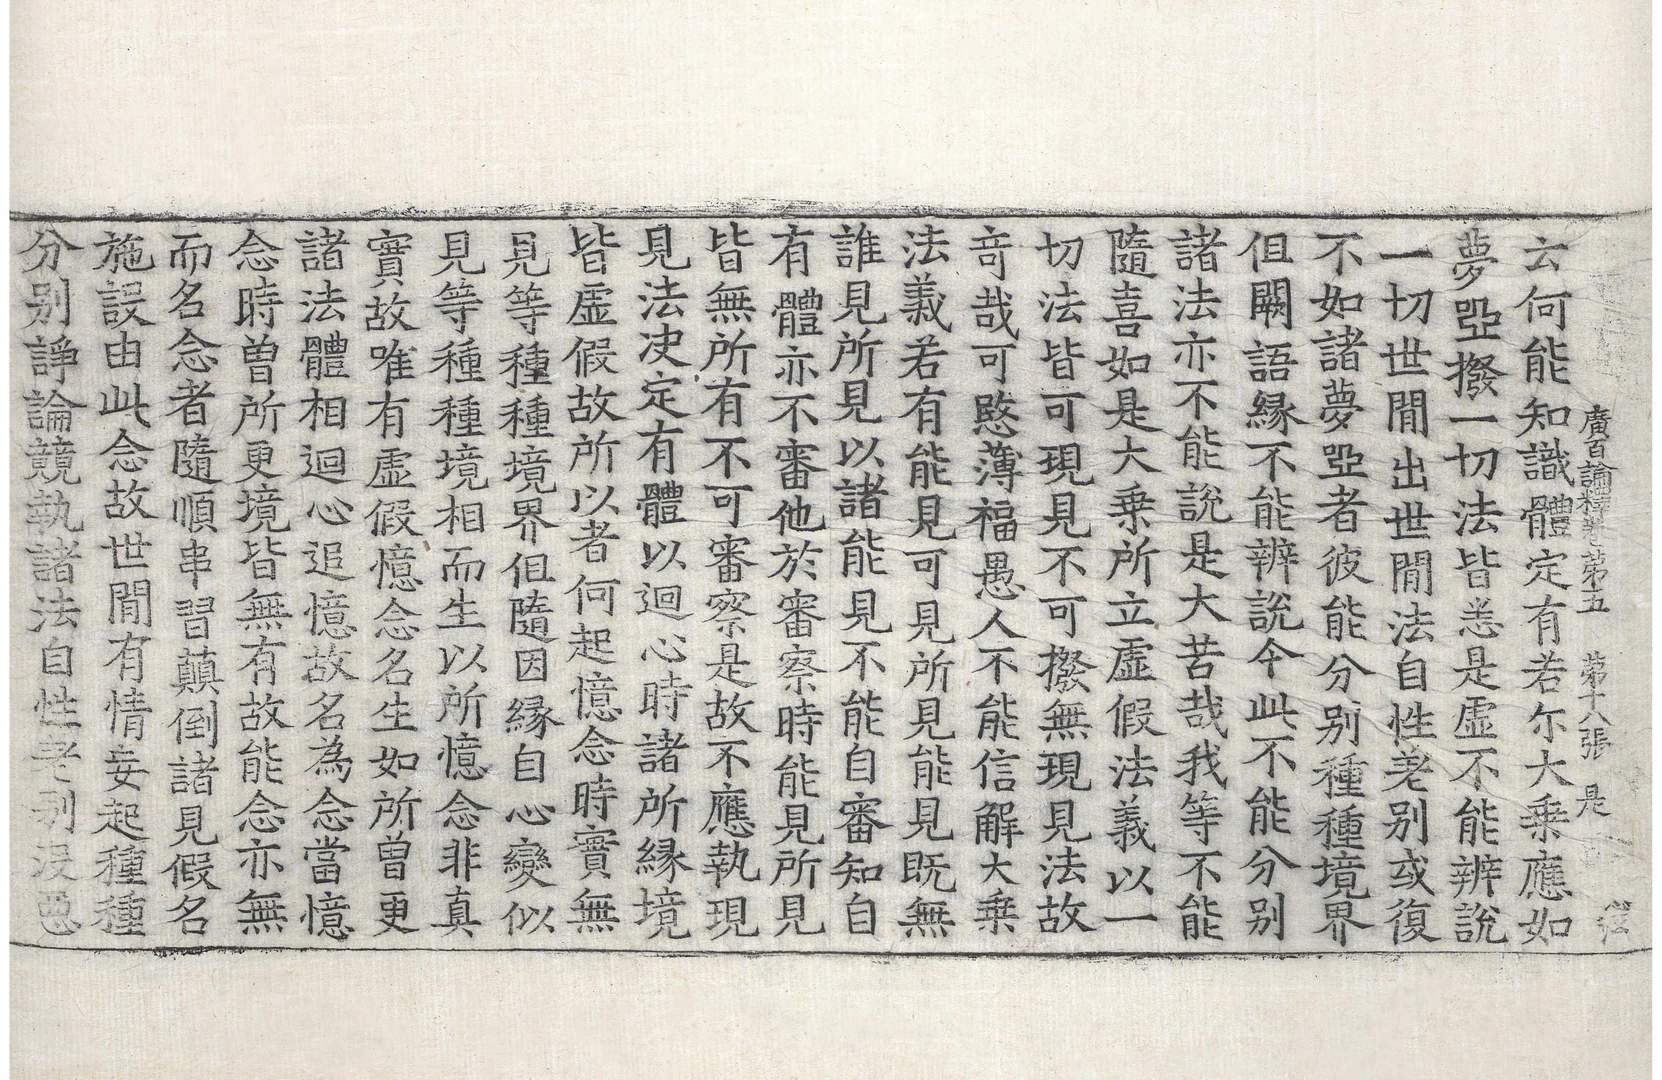 廣百論釋卷第五 第十八張 是
云何能知識體定有若尒大乗應如
夢啞撥一切法皆悉是虛不能辨說
一切世閒出世閒法自性差别或復
不如諸夢啞者彼能分别種種境界
但闕語縁不能辨說今此不能分别
諸法亦不能說是大苦哉我等不能
隨喜如是大乗所立虛假法義以一
切法皆可現見不可撥無現見法故
竒哉可愍薄福愚人不能信解大乗
法義若有能見可見所見能見既無
誰見所見以諸能見不能自審知自
有體亦不審他於審察時能見所見
皆無所有不可審察是故不應執現
見法决定有體以迴心時諸所縁境
皆虛假故所以者何起憶念時實無
見等種種境界但隨因縁自心變似
見等種種境相而生以所憶念非真
實故唯有虛假憶念名生如所曾更
諸法體相迴心追憶故名為念當憶
念時曾所更境皆無有故能念亦無
而名念者隨順串習顛倒諸見假名
施設由此念故世閒有情妄起種種
分别諍論競執諸法自性差别没惡